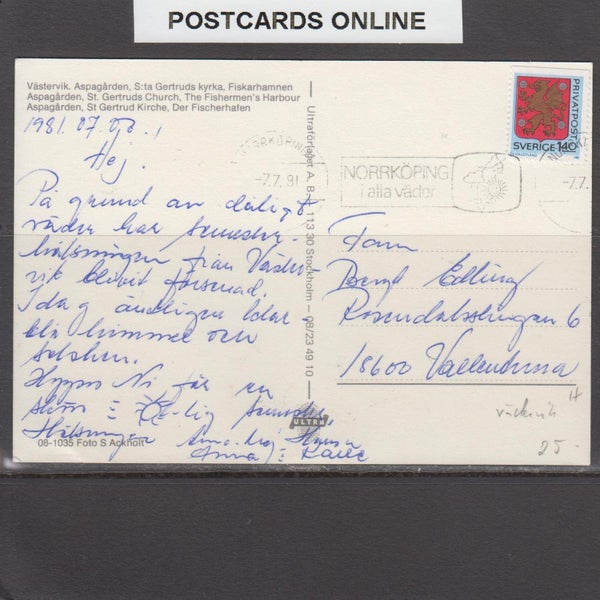 POSTCARDS ONLINE
Västervik. Aspagården, S:ta Gertruds kyrka, Fiskarhamnen
Aspagården, St. Gertruds Church, The Fishermen's Harbour
Aspagården, St Gertrud Kirche, Der Fischerhafen
1981.07.06.
Hej.
På grund av dåligt
väder har semester-
hälsningen från Väster-
vik blivit försenad.
Idag äntligen klar
blå himmel och
solsken.
Hoppas Ni får en
skön semester
Hälsningar
Anna
08-1035 Foto S Ackholt
Ultraförlaget A. B. 113 30 Stockholm – 08/23 49 10
ULTRA
NORRKÖPING
-7.7.81
NORRKÖPING
i alla väder
-7.7.
PRIVATPOST
SVERIGE 140
Fam
Bengt Edling
6
18600 Vallentuna
västervik
25-